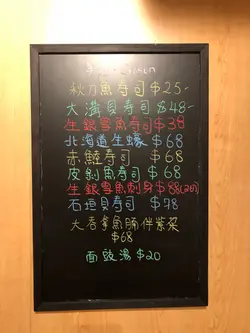 秋刀魚寿司 $25-
大溝貝寿司 $48-
生銀雪魚寿司 $38
北海道生蠔 $68
赤鯥寿司 $68
皮剝魚寿司 $68
生銀雪魚刺身 $88(2切)
石垣貝寿司 $78
大吞拿魚腩伴紫菜
$68
面豉湯 $20